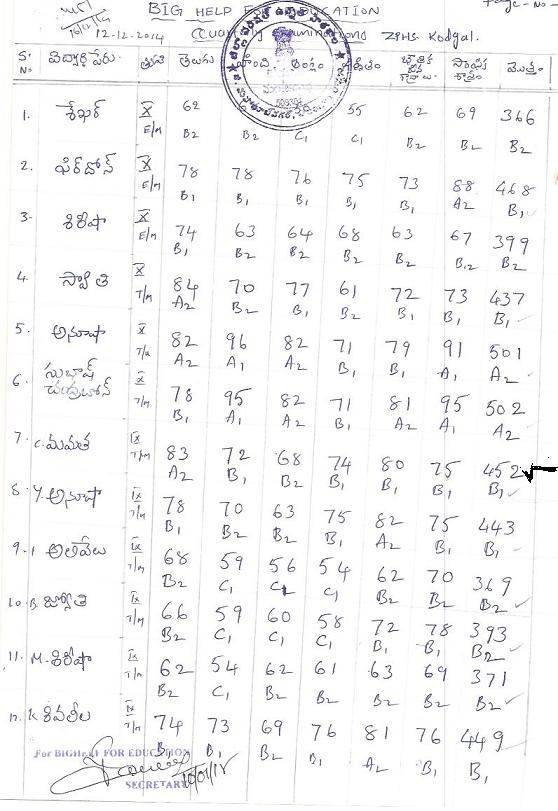 16/12/14
12-12-2014
BIG HELP FOR EDUCATION
Page - No -
Quarterly Examinations ZPHS. Kodgal.
S.No విద్యార్థి పేరు తెలుగు హిందీ గణితం మొత్తం
1. శేఖర్ X 62 55 62 69 366
E/M B2 B2 C1 B2 B2 B2
2. ఫిర్దోస్ X 78 78 76 75 73 88 468
E/M B1 B1 B1 B1 B1 A2 B1
3- శిరీషా X 74 63 64 68 63 67 399
E/M B1 B2 B2 B2 B2 B2 B2
4. స్వాతి X 84 70 77 61 72 73 437
T/M A2 B2 B1 B2 B1 B1 B1
5. అనూషా X 82 96 82 71 79 91 501
T/M A2 A1 A2 B1 B1 A1 A2
6. సుభాష్ చంద్రబోస్ X 78 95 82 71 81 95 502
T/M B1 A1 A2 B1 A2 A1 A2
7. C. మమత IX 83 72 68 74 80 75 452
T/M A2 B1 B2 B1 B1 B1 B1
8. Y. అనూషా IX 78 70 63 75 82 75 443
T/M B1 B2 B2 B1 A2 B1 B1
9. అలివేలు IX 68 59 56 54 62 70 369
T/M B2 C1 C1 C1 B2 B2 B2
10. B. జ్యోతి IX 66 59 60 58 72 78 393
T/M B2 C1 C1 C1 B1 B1 B2
11. M. శిరీషా IX 62 54 62 61 63 69 371
T/M B2 C1 B2 B2 B2 B2 B2
12. K. శివలీల IX 74 73 69 76 81 76 449
T/M B1 B1 B2 B1 A2 B1 B1
For BIG HELP FOR EDUCATION
SECRETARY